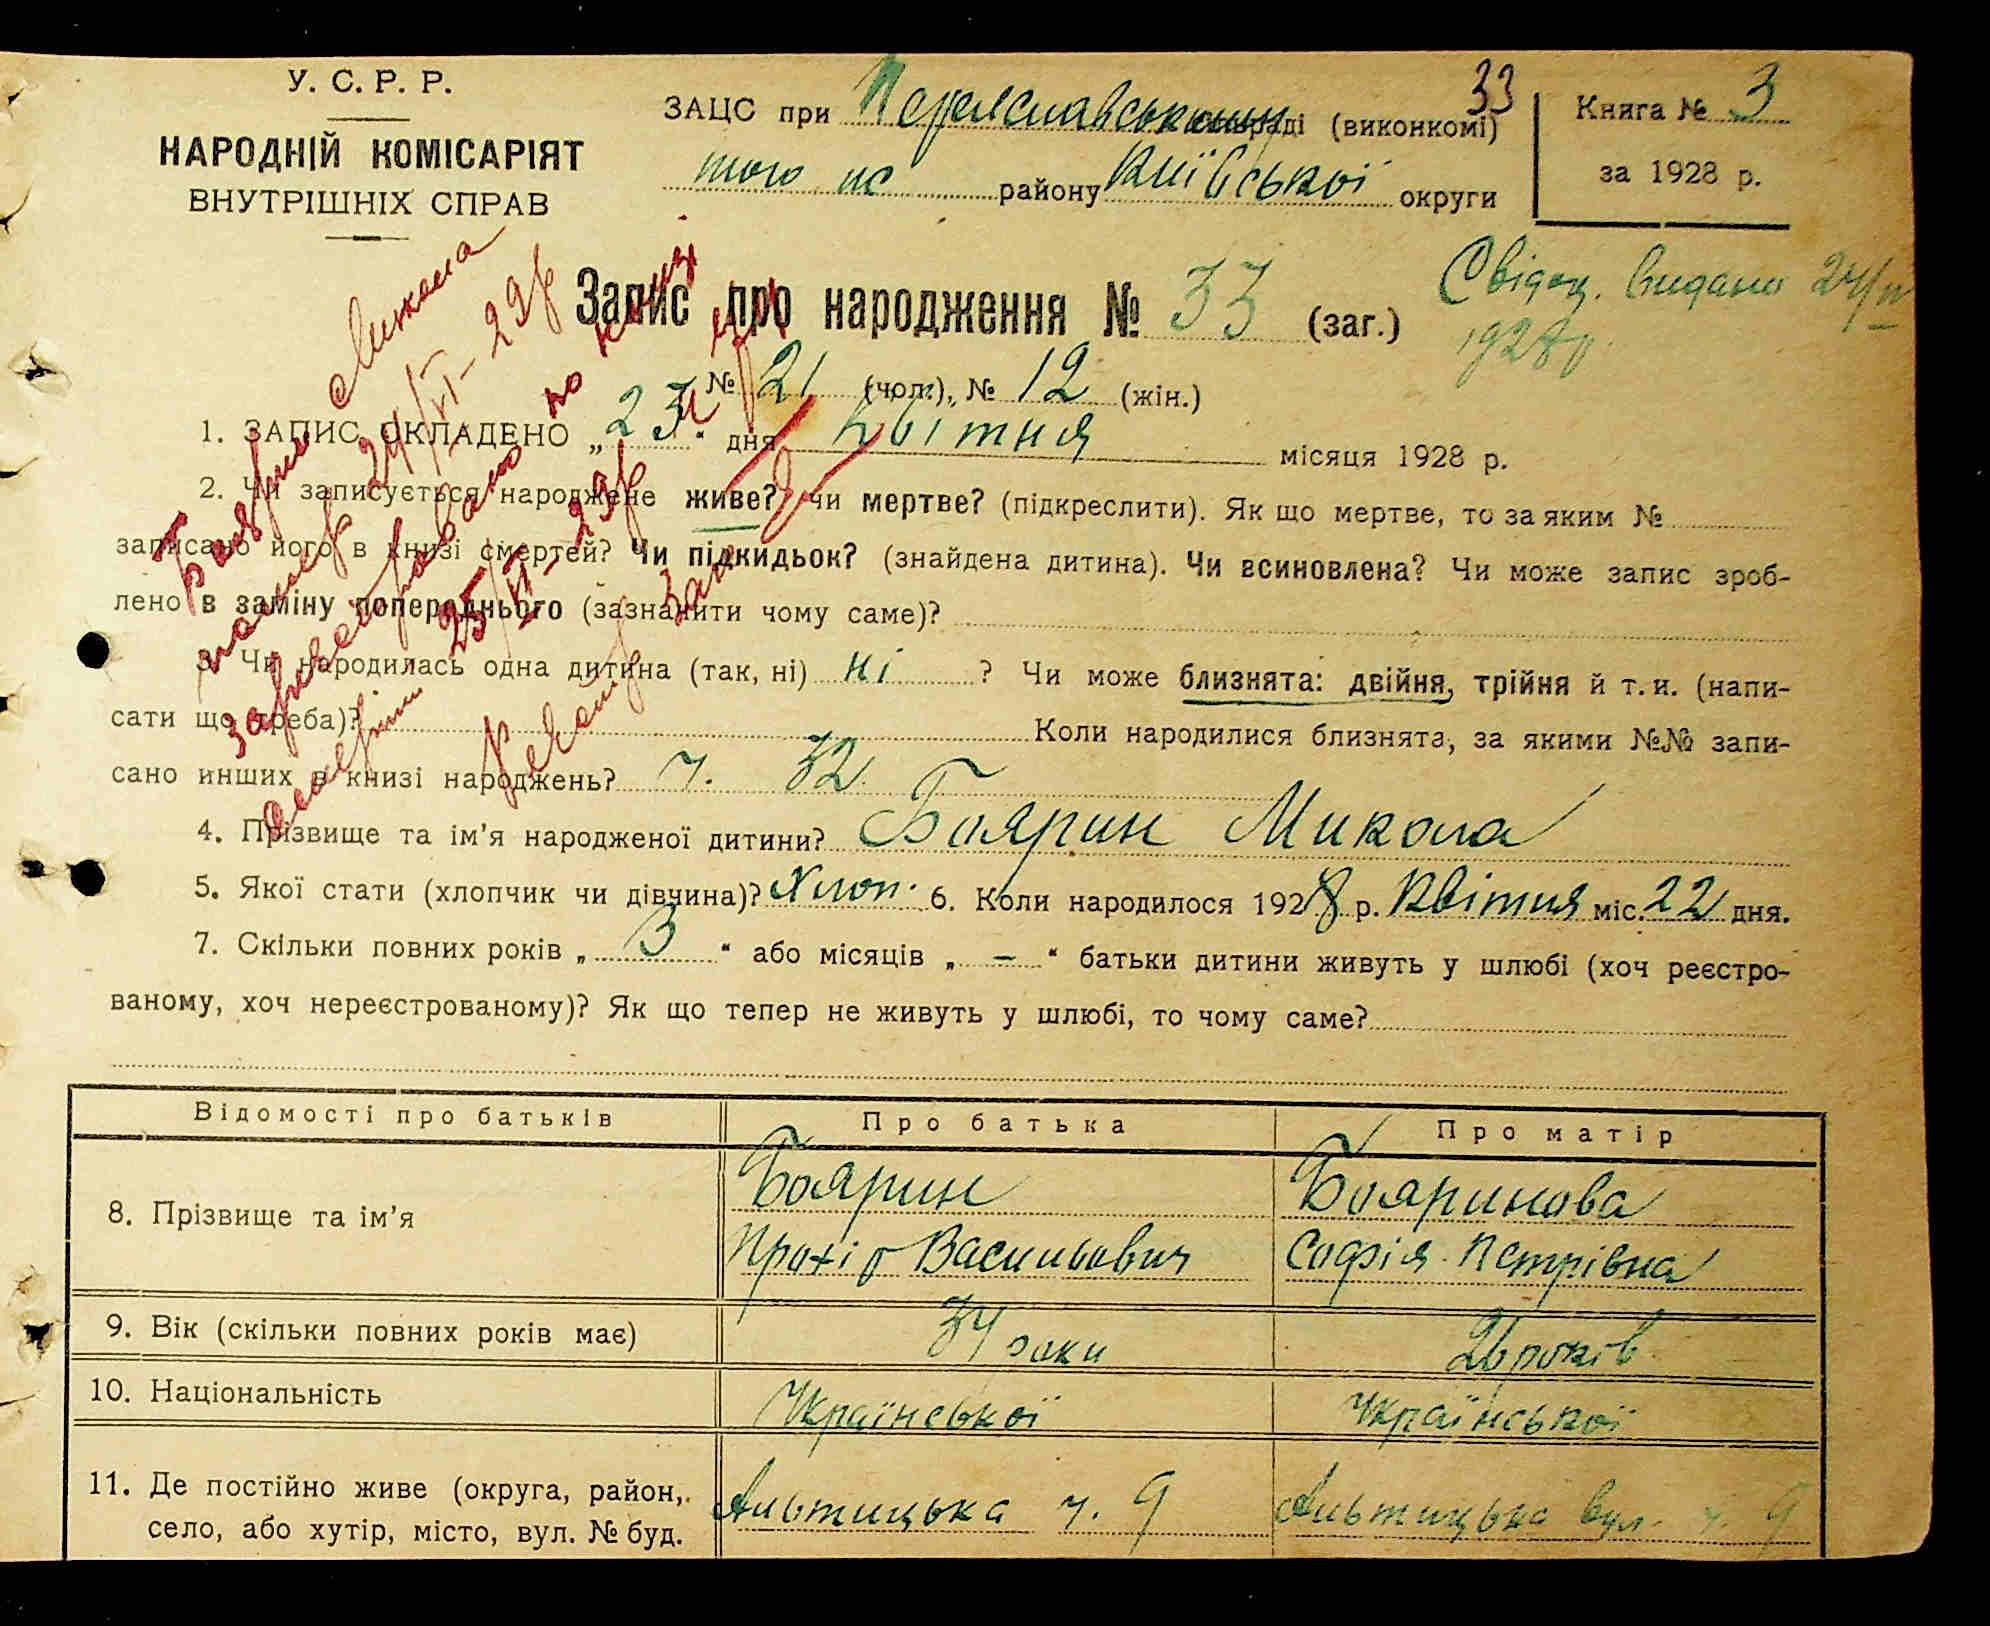 У. С. Р. Р.
НАРОДНІЙ КОМІСАРІЯТ
ВНУТРІШНІХ СПРАВ
33
ЗАЦС при Переяславському раді (виконкомі)
того ж району Київської округи
Книга № 3
за 1928 р.
Запис про народження № 33 (заг.)
Свідоц. видано 24/IV
1928 р.
№ 21 (чол.), № 12 (жін.)
1. ЗАПИС СКЛАДЕНО „ 23 “ дня Квітня місяця 1928 р.
2. Чи записується народжене живе? чи мертве? (підкреслити). Як що мертве, то за яким №
записано його в книзі смертей? Чи підкидьок? (знайдена дитина). Чи всиновлена? Чи може запис зроб-
лено в заміну попереднього (зазначити чому саме)?
3. Чи народилась одна дитина (так, ні) ні ? Чи може близнята: двійня, трійня й т. и. (напи-
сати що треба)? Коли народилися близнята, за якими №№ запи-
сано инших в книзі народжень? ч. 32.
4. Прізвище та ім’я народженої дитини? Боярин Микола
5. Якої стати (хлопчик чи дівчина)? Хлоп. 6. Коли народилося 1928 р. Квітня міс. 22 дня.
7. Скільки повних років „ 3 “ або місяців „ – “ батьки дитини живуть у шлюбі (хоч реєстро-
ваному, хоч нереєстрованому)? Як що тепер не живуть у шлюбі, то чому саме?
Відомості про батьків Про батька Про матір
8. Прізвище та ім’я
Боярин
Прохір Васильович
Бояринова
Софія Петрівна
9. Вік (скільки повних років має) 34 роки 26 років
10. Національність Української Української
11. Де постійно живе (округа, район,
село, або хутір, місто, вул. № буд.
Альтицька ч. 9 Альтицька вул. ч. 9
Микола
24/VI – 29 р
зареєстровано по книзі
25/VI – 29 р